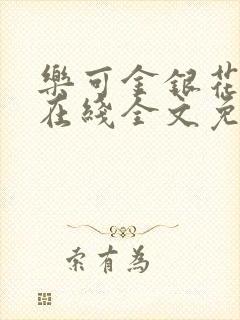 樂可金銀花
在綫全文免
索有為